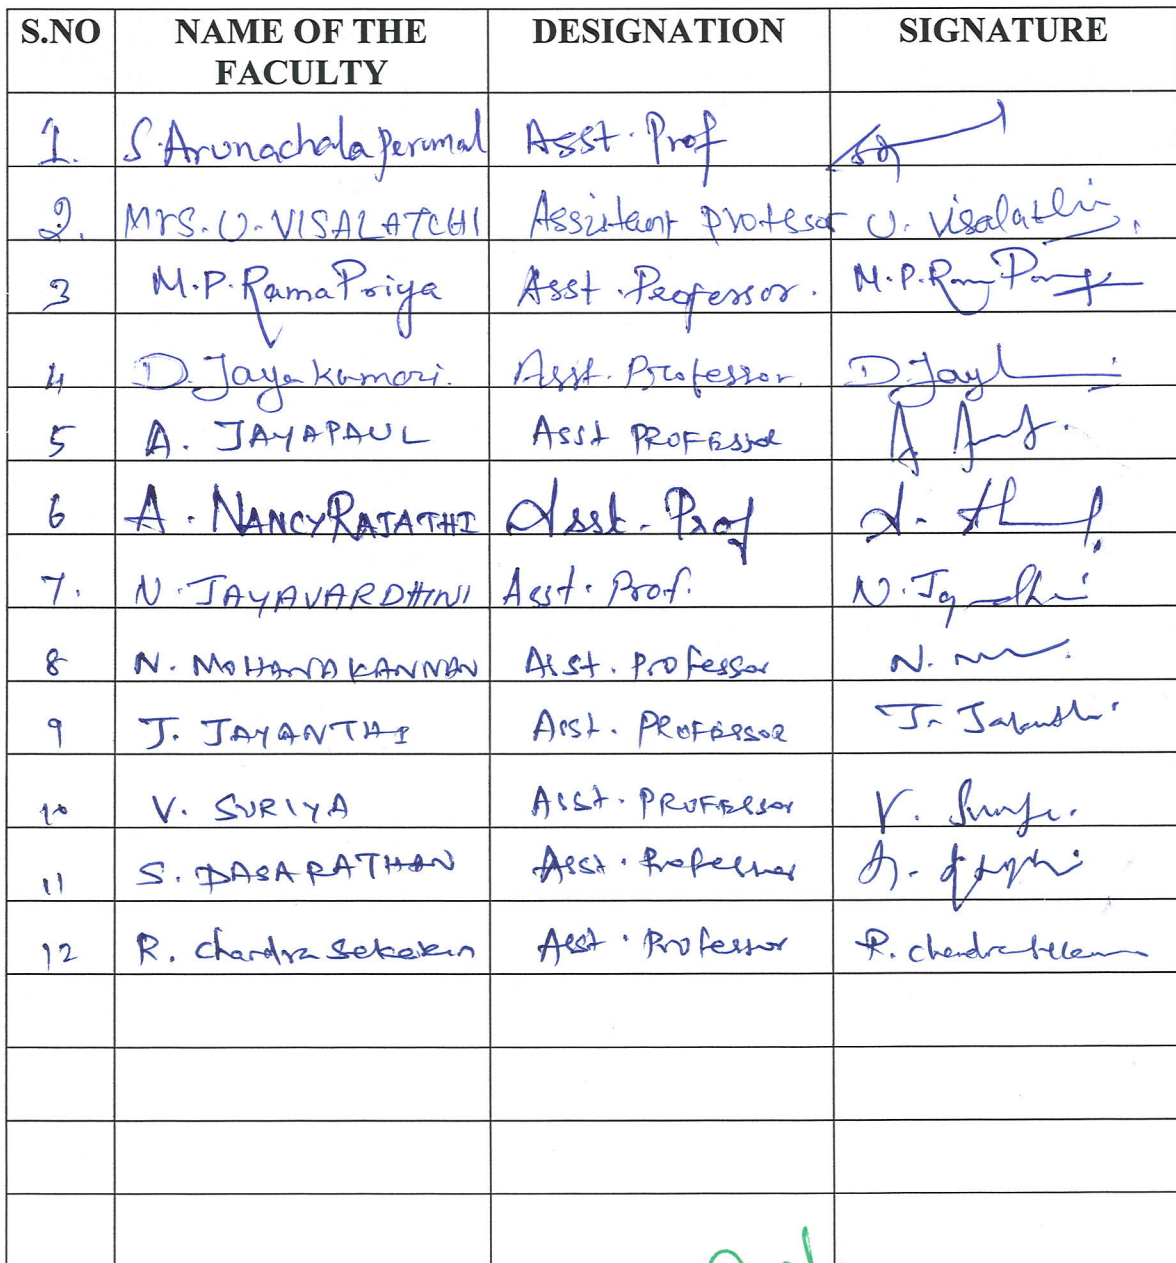 S.NO NAME OF THE FACULTY DESIGNATION SIGNATURE
1. S.Arunachala Perumal Asst. Prof
2. MRS. U. VISALATCHI Assistant Professor U. Visalatchi.
3 M.P. Rama Priya Asst. Professor. M.P. Rama
4 D. Jaya kumari. Asst. Professor. D. Jay
5 A. JAYAPAUL Asst PROFESSOR A
6 A. NANCYRAJATHI Asst. Prof A.
7. N. JAYAVARDHINI Asst. Prof. N.
8 N. MOHANAKANNAN Asst. Professor N.
9 J. JAYANTHI Asst. PROFESSOR J. Jayanthi
10 V. SURIYA Asst. PROFESSOR V.
11 S. DASARATHAN Asst. Professor
12 R. chandra sekaran Asst. Professor R. chandrasekaran